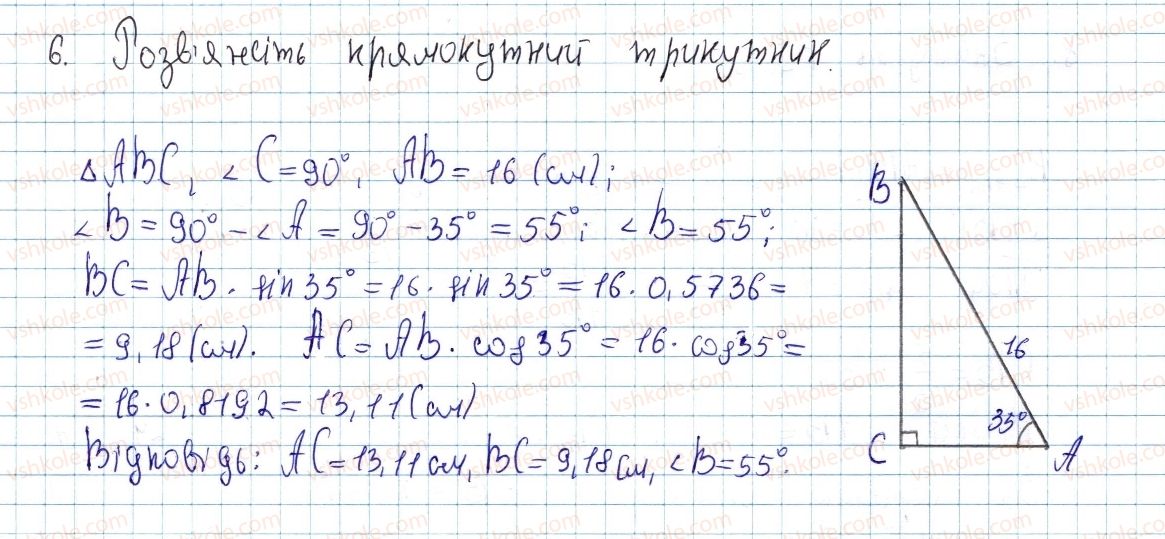 6. Розв'яжіть прямокутний трикутник.
△ABC, ∠C = 90°, AB = 16 (см);
∠B = 90° - ∠A = 90° - 35° = 55°; ∠B = 55°;
BC = AB · sin 35° = 16 · sin 35° = 16 · 0,5736 =
= 9,18 (см). AC = AB · cos 35° = 16 · cos 35° =
= 16 · 0,8192 = 13,11 (см)
Відповідь: AC = 13,11 см, BC = 9,18 см, ∠B = 55°.
B
16
35°
C
A
vshkole.com